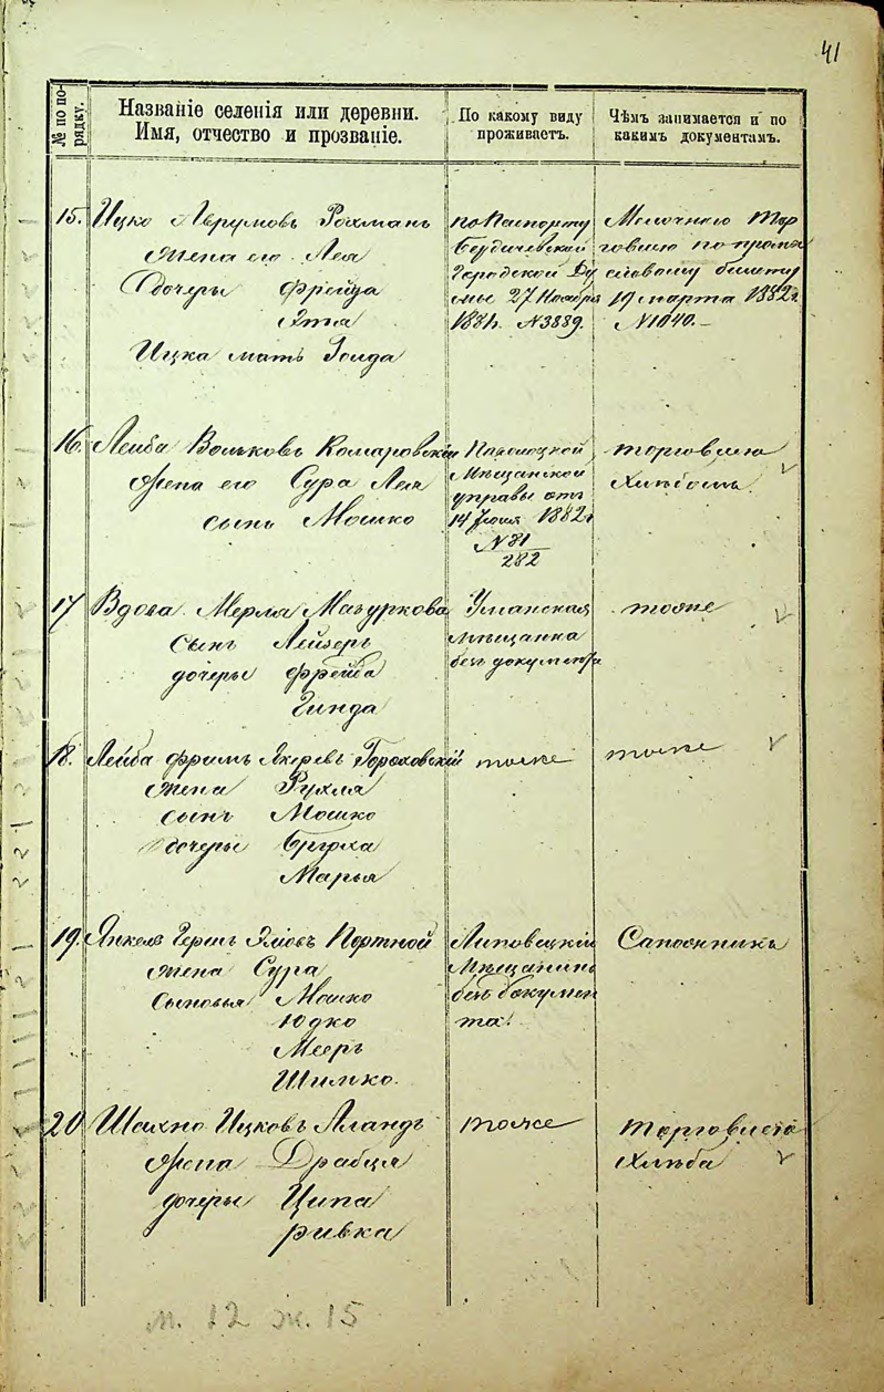 41
№ по по-
рядку.
Названіе селенія или деревни.
Имя, отчество и прозваніе.
По какому виду
проживаетъ.
Чѣмъ занимается и по
какимъ документамъ.
15. Ицко Аврумовъ Рохманъ
жена его Лея
дочеры Фрейда
Эта
Ицка мать Голда
по Паспорту
Бердичевской
Городской Ду
мы 27 Ноября
1881г. №3889.
Молочною тор
говлею по промы
словому билету
19 марта 1882г.
№1040.
16. Лейба Вольковъ Комаровскій
Жена его Сура Лея
сынъ Мошко
Мѣщанской
управы отъ
14 Іюня 1882г
№ 81
282
торговлею
хлѣбомъ.
17 Вдова Мерля Мазуркова
сынъ Лейзеръ
дочеры Фрейда
Гинда
Уманская
мѣщанка
безъ документа
тоже
18. Лейба Фроимъ Гороховскій
жена Рухля
сынъ Мошко
дочеры Бруха
Марья
тоже
тоже
19. Янкель Гершъ Портной
жена Сура
сыновья Мошко
Юдко
Мееръ
Шимко.
Липовецкій
Мѣщанинъ
безъ докумен
та.
Сапожникъ
20 Шахно Ицковъ Аландъ
Жена Драбця
дочеры Ципа
ривка
тоже
торговлею
хлѣба
м. 12 ж. 15